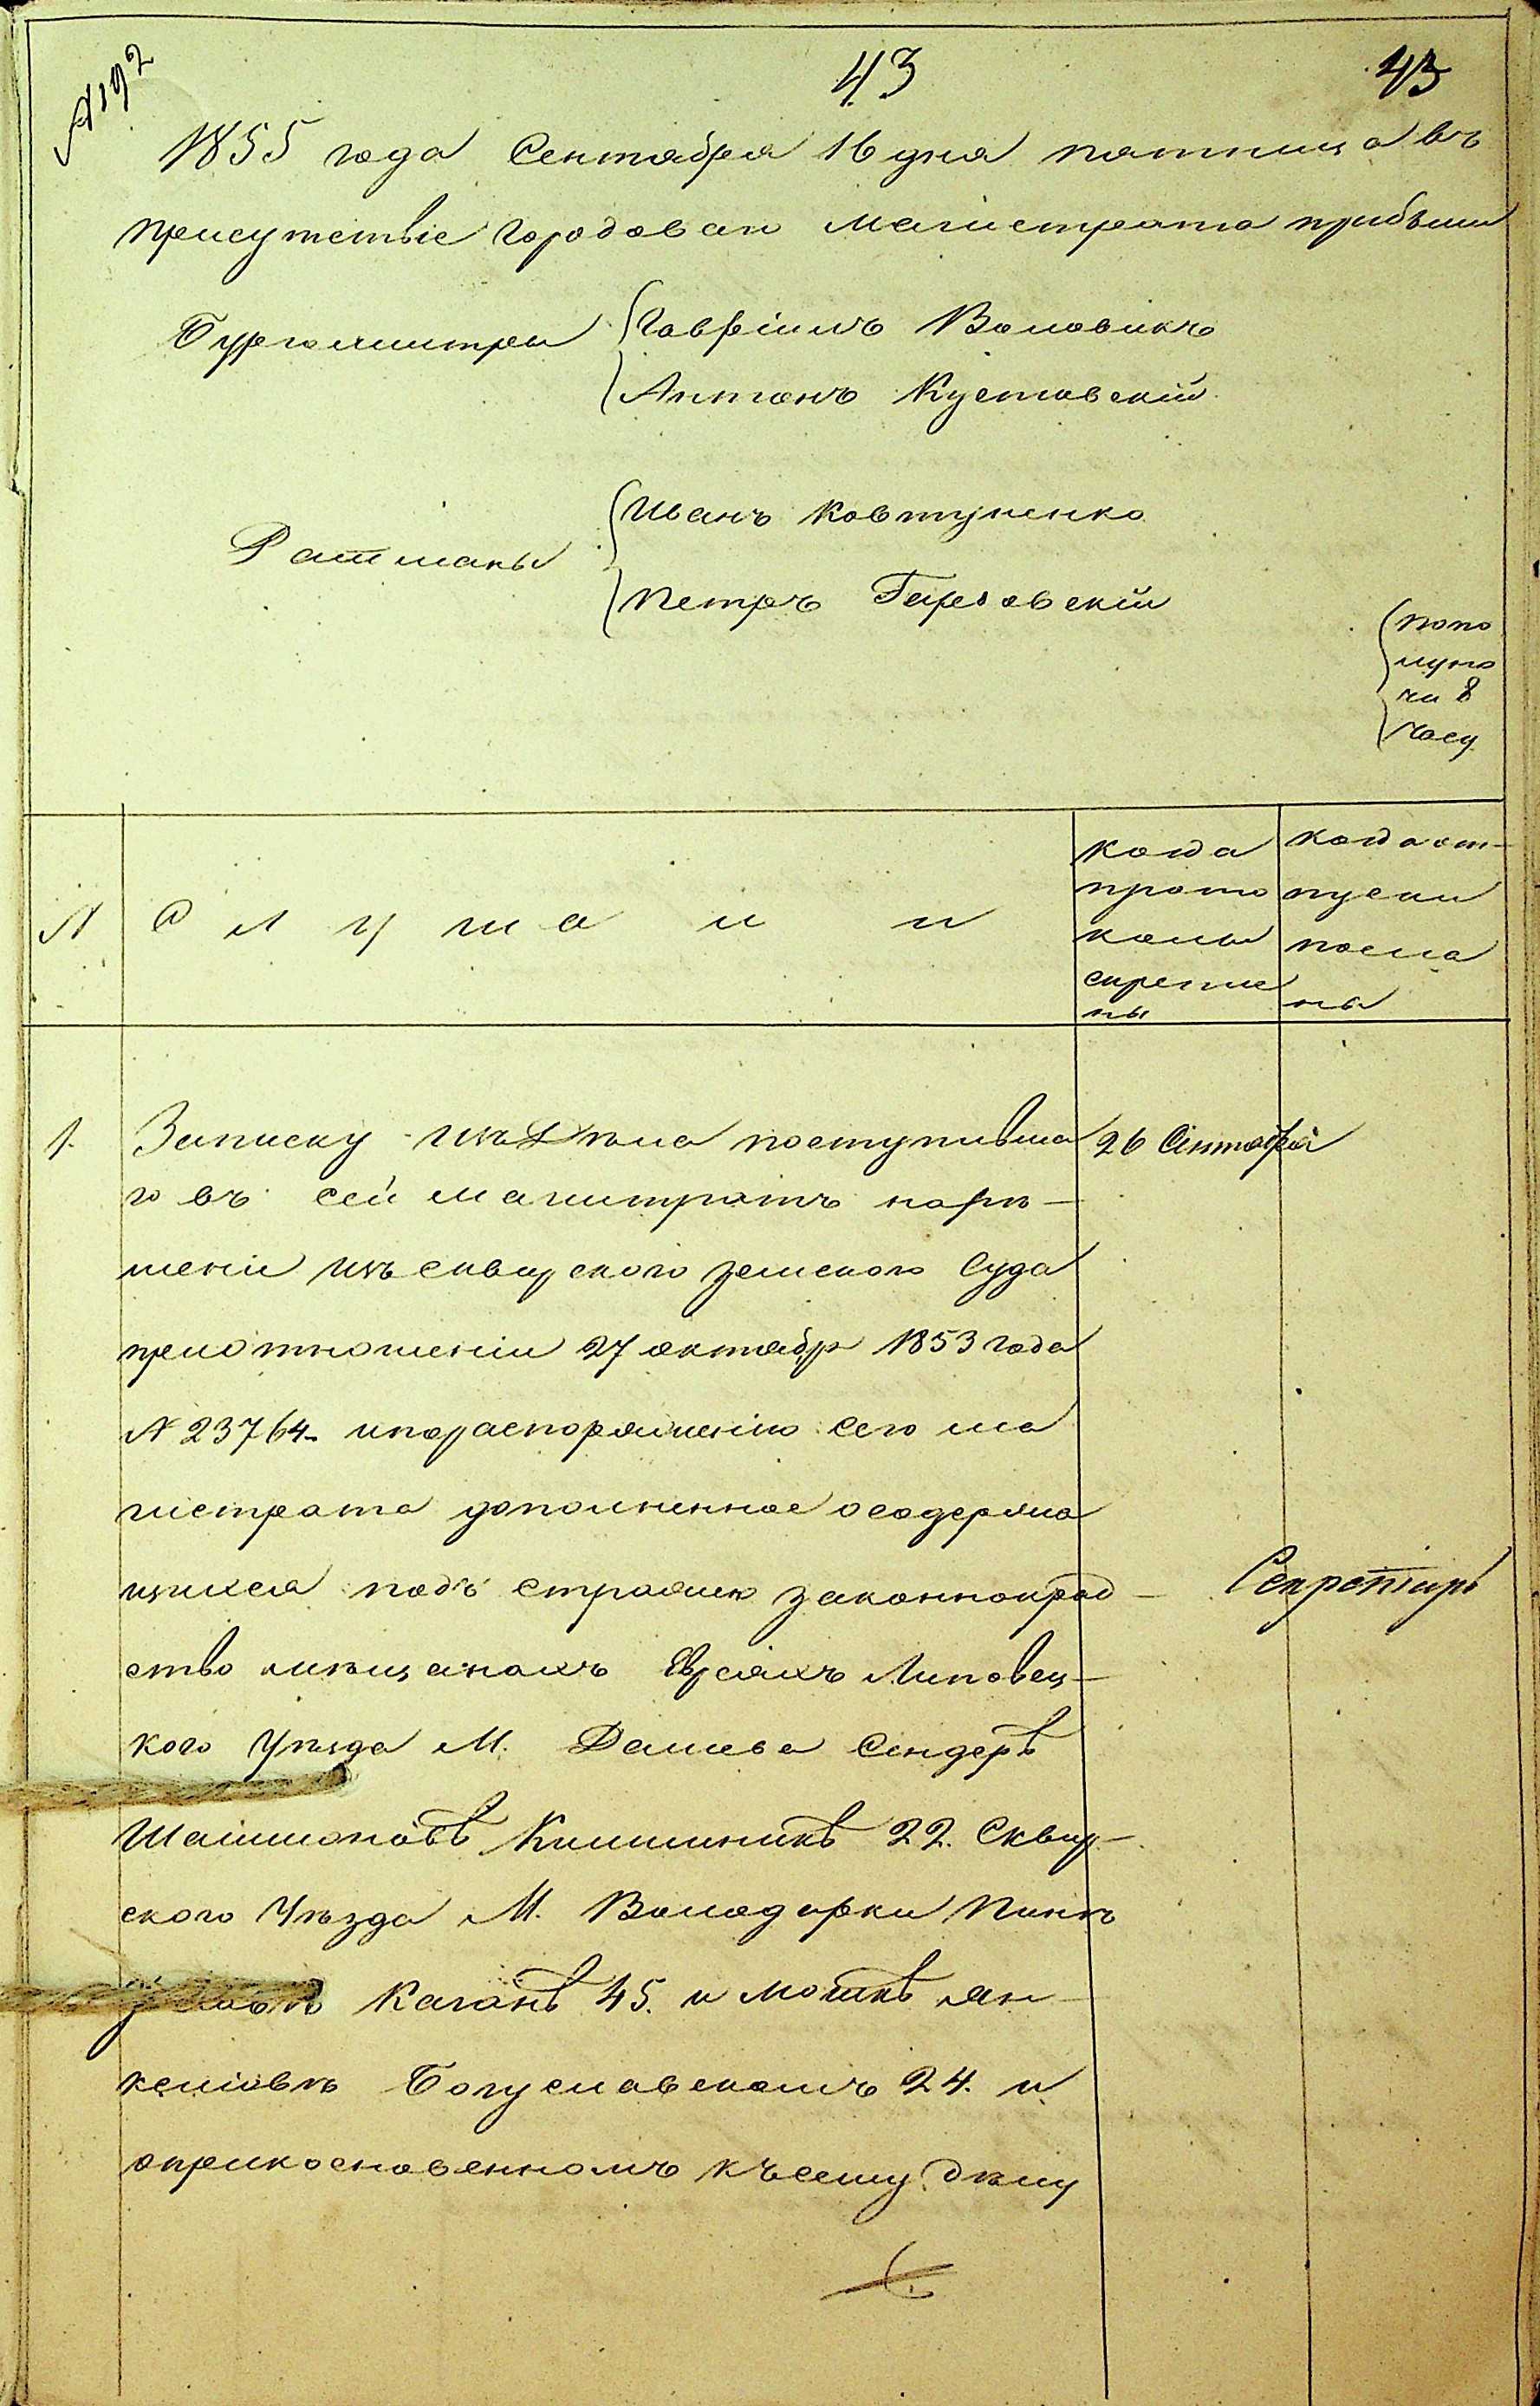 № 192
43
43
1855 года Сентября 16 дня пятница въ
присутствіе городоваго магистрата прибыли
Бургомистры
Гавріилъ Воловикъ
Антонъ Кустовскій
Ратманы
Иванъ Ковтуненко
Петръ
попо
луно
чи 8
часу
№
С л у ш а л и
когда
прото
колы
скрепле
ны
когда от-
пуски
посла
ны
1.
Записку изъ Дѣла поступивша
го въ сей магистратъ нарѣ-
шеніе изъ сквирского земского Суда
приотношеніи 27 октября 1853 года
№ 23764. ипораспоряженію сего ма
гистрата дополненное осодержа
щихся подъ стражею законнокрад-
ство мѣщанахъ Евреяхъ Липовец-
кого Уѣзда М. Дашева Сендерѣ
22. Сквир-
ского Уѣзда М. Володарки Пинк
Каганѣ 45. и мошкѣ Ян-
келіовѣ Богуславскомъ 24. и
оприкосновенномъ къ сему дѣлу
26 Сентября
Секретарь